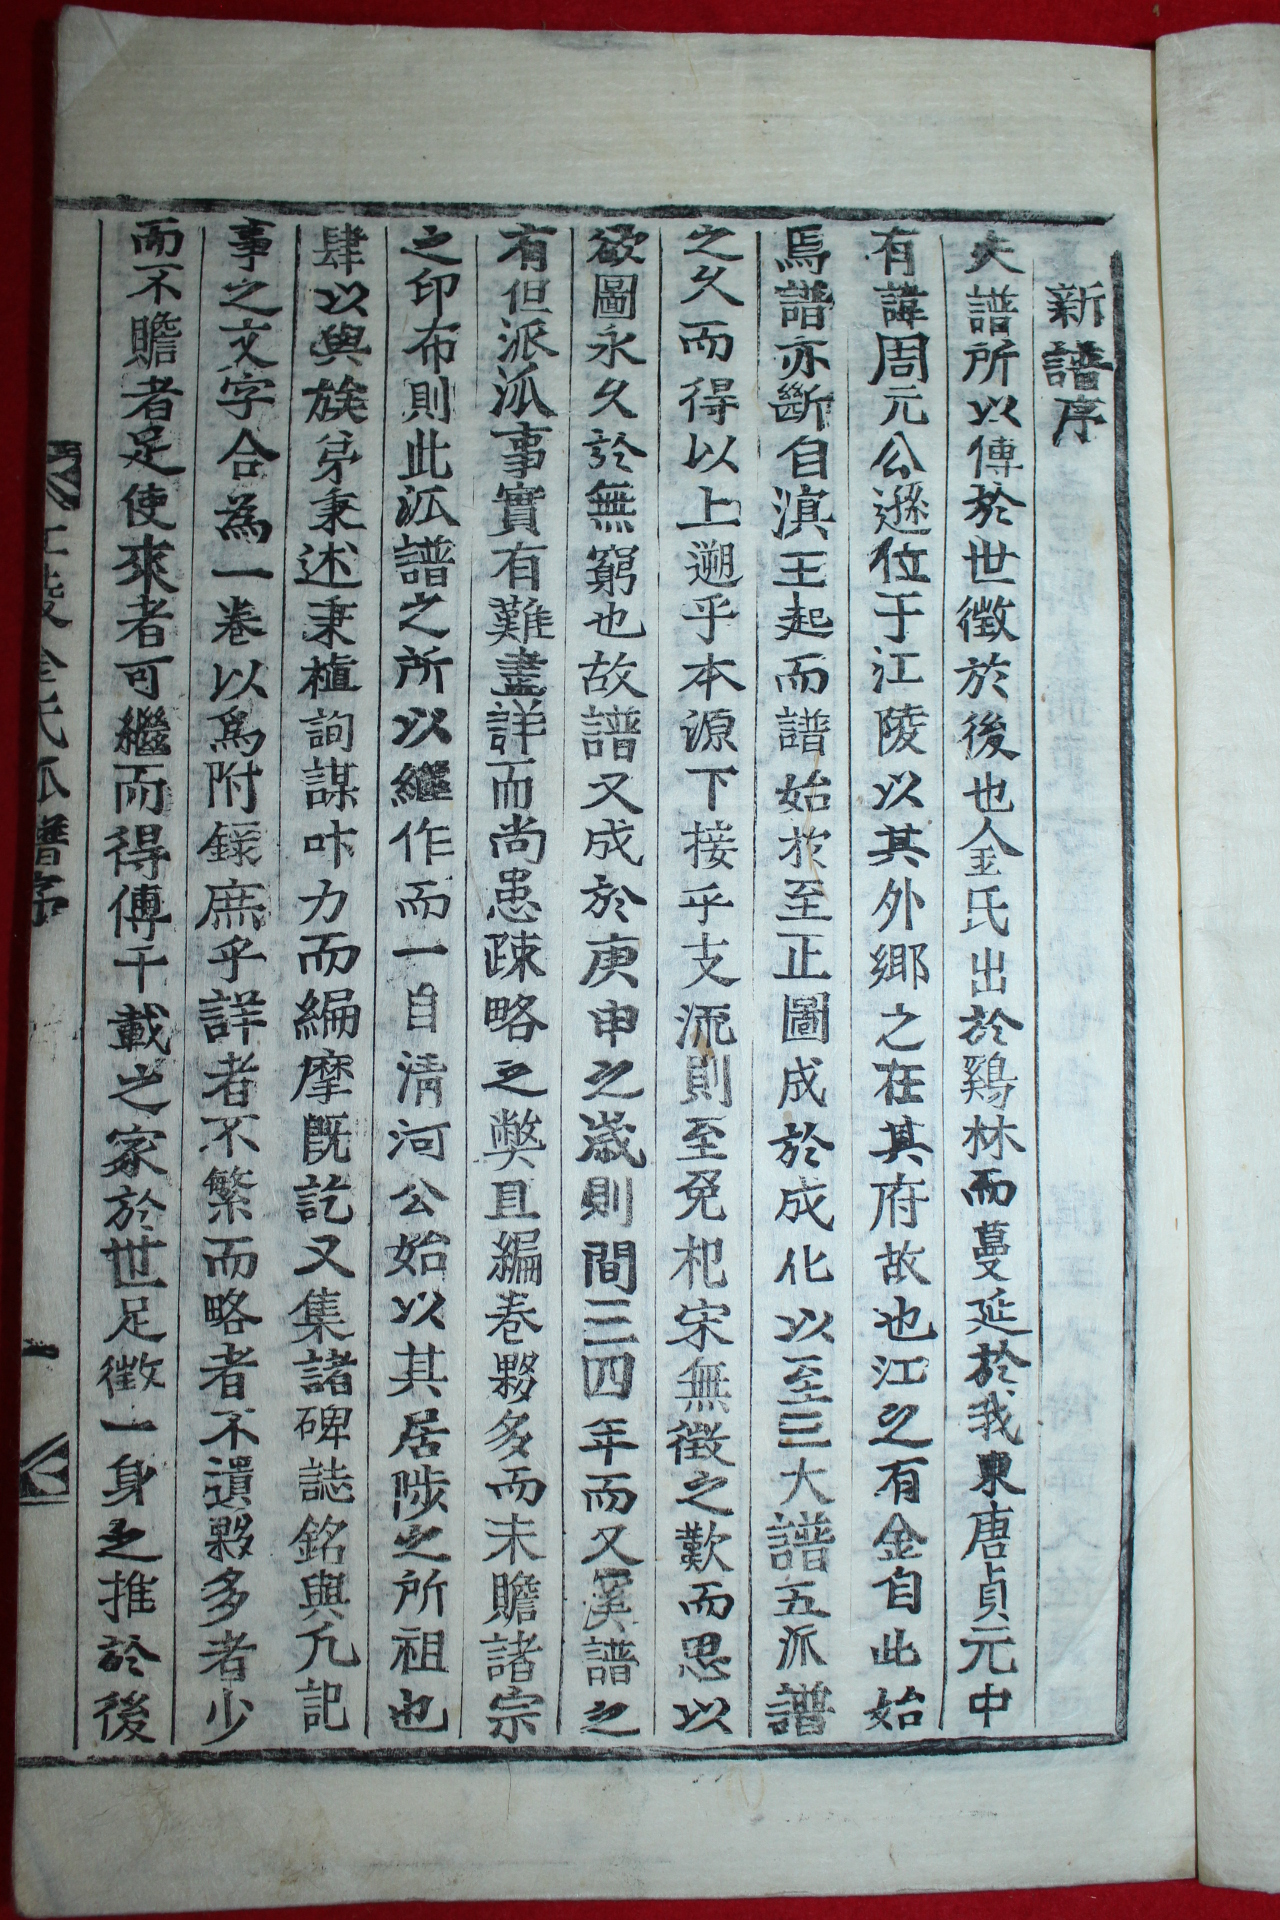 新譜序
夫譜所以傳於世徵於後也金氏出於鷄林而蔓延於我東唐貞元中
有諱周元公遜位于江陵以其外鄕之在其府故也江之有金自此始
焉譜亦斷自溟王起而譜始於至正圖成於成化以至三大譜五派譜
之久而得以上遡乎本源下接乎支流則至免杞宋無徵之歎而思以
欲圖永久於無窮也故譜又成於庚申之歲則間三四年而又溪譜之
有但派派事實有難盡詳而尚患疎略之弊且編卷夥多而未贍諸宗
之印布則此派譜之所以繼作而一自淸河公始以其居陟之所祖也
肆以與族弟秉述秉植詢謀 力而編摩旣訖又集諸碑誌銘與凡記
事之文字合爲一卷以爲附錄庶乎詳者不繁而略者不遺夥多者少
而不贍者足使來者可繼而得傳千載之家於世足徵一身之推於後
江陵金氏派譜序 一